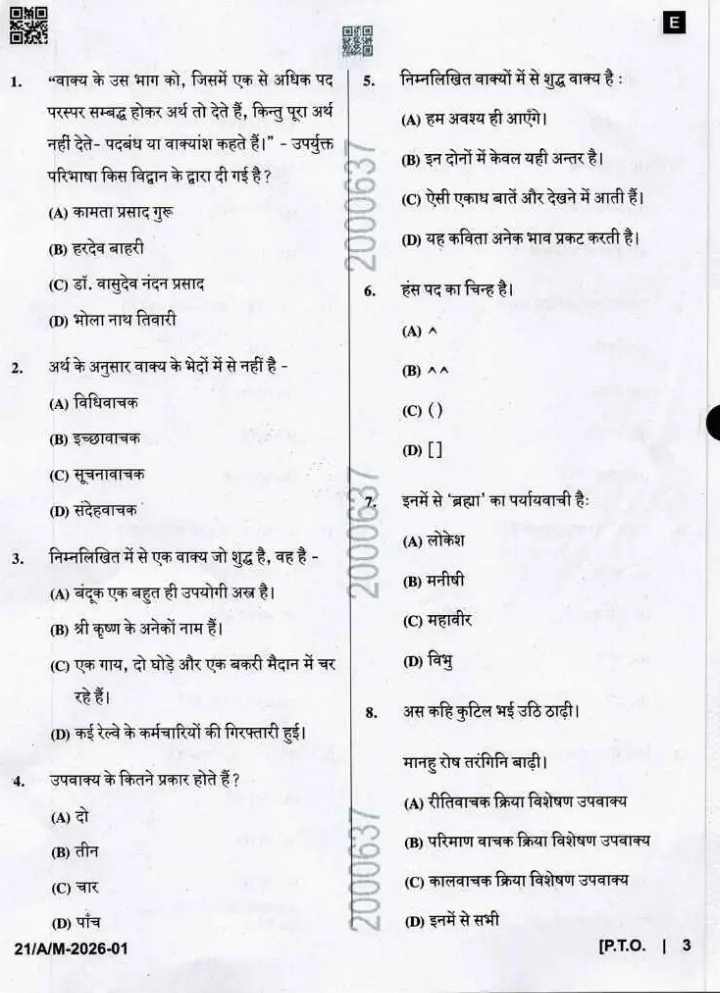 E
1. “वाक्य के उस भाग को, जिसमें एक से अधिक पद
परस्पर सम्बद्ध होकर अर्थ तो देते हैं, किन्तु पूरा अर्थ
नहीं देते- पदबंध या वाक्यांश कहते हैं।” - उपर्युक्त
परिभाषा किस विद्वान के द्वारा दी गई है ?
(A) कामता प्रसाद गुरू
(B) हरदेव बाहरी
(C) डॉ. वासुदेव नंदन प्रसाद
(D) भोला नाथ तिवारी
2. अर्थ के अनुसार वाक्य के भेदों में से नहीं है -
(A) विधिवाचक
(B) इच्छावाचक
(C) सूचनावाचक
(D) संदेहवाचक
3. निम्नलिखित में से एक वाक्य जो शुद्ध है, वह है -
(A) बंदूक एक बहुत ही उपयोगी अस्त्र है।
(B) श्री कृष्ण के अनेकों नाम हैं।
(C) एक गाय, दो घोड़े और एक बकरी मैदान में चर
रहे हैं।
(D) कई रेल्वे के कर्मचारियों की गिरफ्तारी हुई।
4. उपवाक्य के कितने प्रकार होते हैं ?
(A) दो
(B) तीन
(C) चार
(D) पाँच
2000637
2000637
2000637
5. निम्नलिखित वाक्यों में से शुद्ध वाक्य है :
(A) हम अवश्य ही आएँगे।
(B) इन दोनों में केवल यही अन्तर है।
(C) ऐसी एकाध बातें और देखने में आती हैं।
(D) यह कविता अनेक भाव प्रकट करती है।
6. हंस पद का चिन्ह है।
(A) ^
(B) ^^
(C) ( )
(D) [ ]
7. इनमें से ‘ब्रह्मा’ का पर्यायवाची है:
(A) लोकेश
(B) मनीषी
(C) महावीर
(D) विभु
8. अस कहि कुटिल भई उठि ठाढ़ी।
मानहु रोष तरंगिनि बाढ़ी।
(A) रीतिवाचक क्रिया विशेषण उपवाक्य
(B) परिमाण वाचक क्रिया विशेषण उपवाक्य
(C) कालवाचक क्रिया विशेषण उपवाक्य
(D) इनमें से सभी
21/A/M-2026-01
[P.T.O. | 3